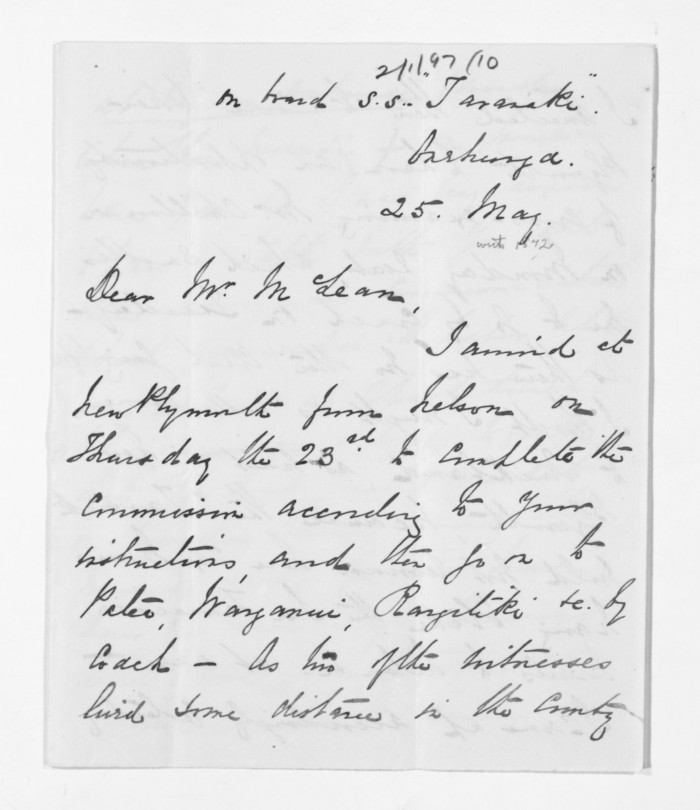 2/1/97/10
on board S.S. "Taranaki".
Onehunga.
25. May.
1872
Dear Mr. McLean,
I arrived at
New Plymouth from Nelson on
Thursday the 23rd to complete the
Commission according to your
instructions, and then go on to
Patea, Wanganui, Rangitiki &c. by
Coach — As two of the witnesses
lived some distance in the Country